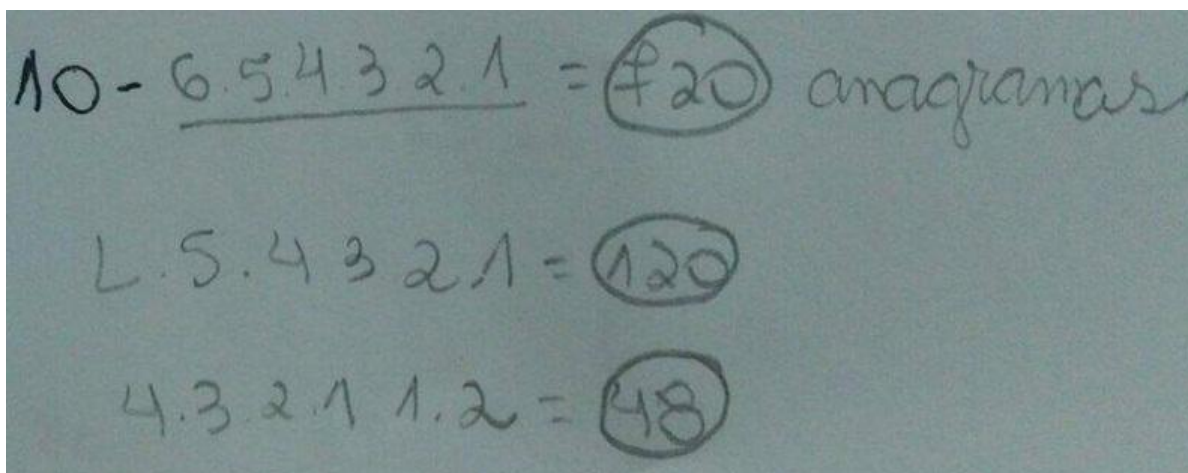 10- 6.5.4.3 2.1 = 720 anagramas
L.5.4 3 2.1 = 120
4.3 2.1 1.2 = 48